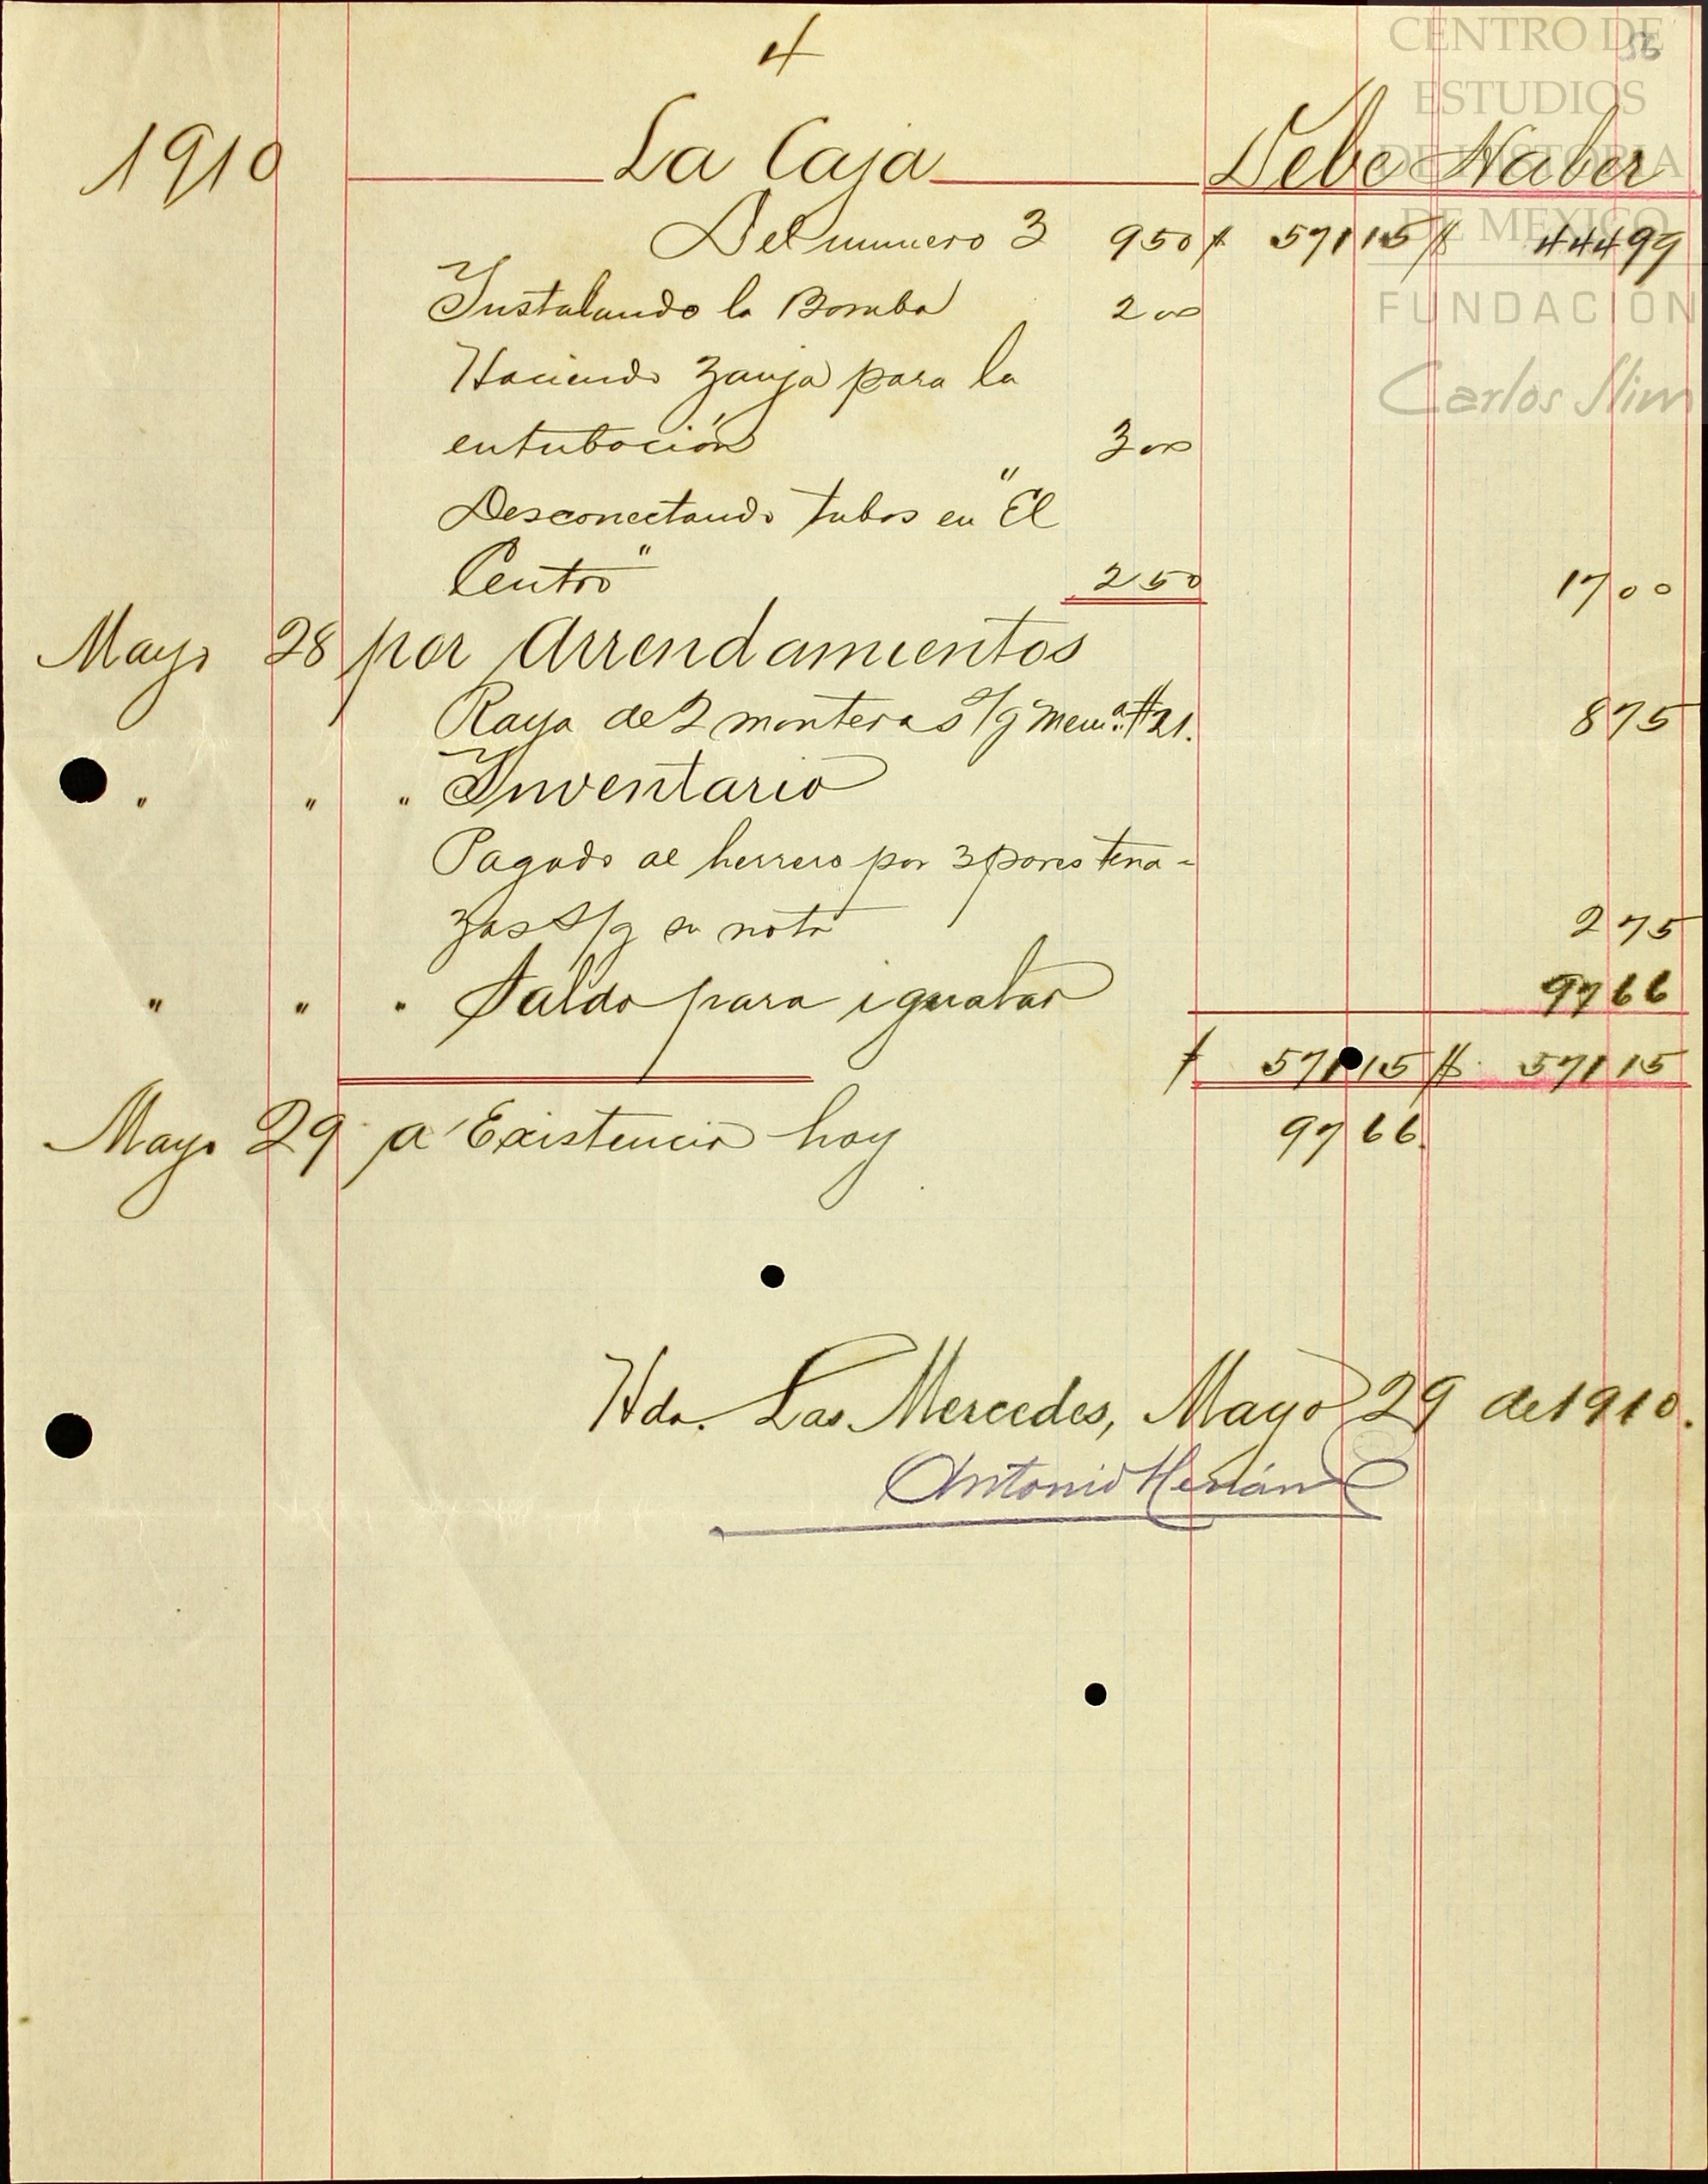 4
53
CENTRO DE
ESTUDIOS
DE HISTORIA
DE MEXICO
FUNDACIÓN
Carlos Slim
1910 La Caja Debe Haber
Del numero 3 950 $ 571 15 $ 444 99
Instalando la Bomba 2 00
Haciendo zanja para la
entubación 3 00
Desconectando tubos en "El
Centro" 2 50 17 00
Mayo 28 por Arrendamientos
Raya de 2 monteras s/g Mema. #21. 8 75
" " " Inventario
Pagado al herrero por 3 pares tena-
zas s/g su nota 2 75
" " " Saldo para igualar 97 66
$ 571 15 $ 571 15
Mayo 29 a Existencia hoy 97 66.
Hda. Las Mercedes, Mayo 29 de 1910.
Antonio